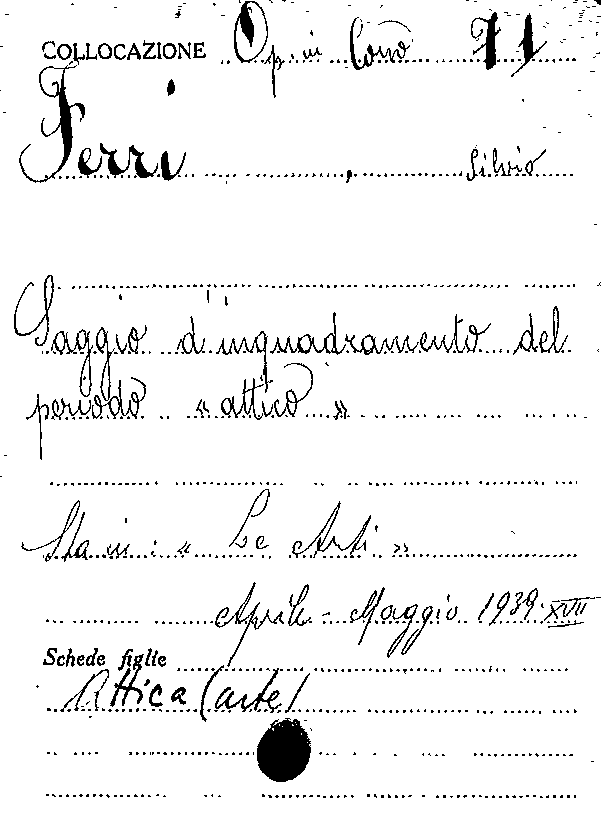 COLLOCAZIONE Op. in Cons 71
Ferri, Silvio
Saggio d'inquadramento del
periodo « attico »
Sta in: « Le Arti »
Aprile - Maggio 1939-XVII
Schede figlie
Attica (arte)